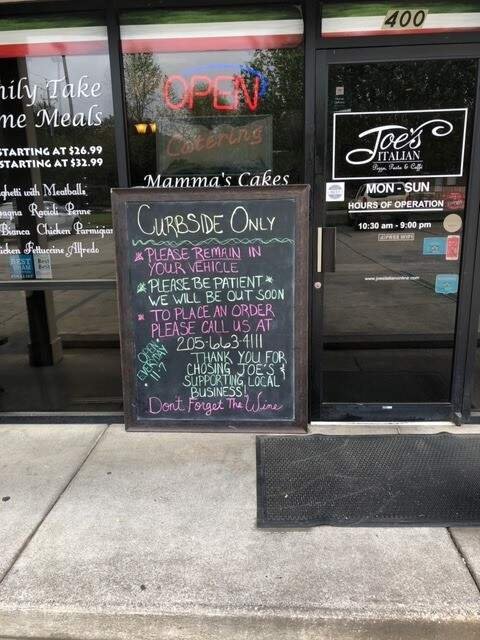 400
OPEN
Catering
Mamma's Cakes
mily Take
me Meals
STARTING AT $26.99
STARTING AT $32.99
ghetti with Meatballs
Penne
Bianca Chicken Parmigian
icken Fettuccine Alfredo
Joe's
ITALIAN
Pizza, Pasta & Caffe
MON - SUN
HOURS OF OPERATION
10:30 am - 9:00 pm
CURBSIDE ONLY
* PLEASE REMAIN IN
YOUR VEHICLE
* PLEASE BE PATIENT
WE WILL BE OUT SOON
* TO PLACE AN ORDER
PLEASE CALL US AT
205-663-4111
THANK YOU FOR
CHOSING JOE'S &
SUPPORTING LOCAL
BUSINESS!
Dont Forget The Wine
OPEN
EVERYDAY
11-7